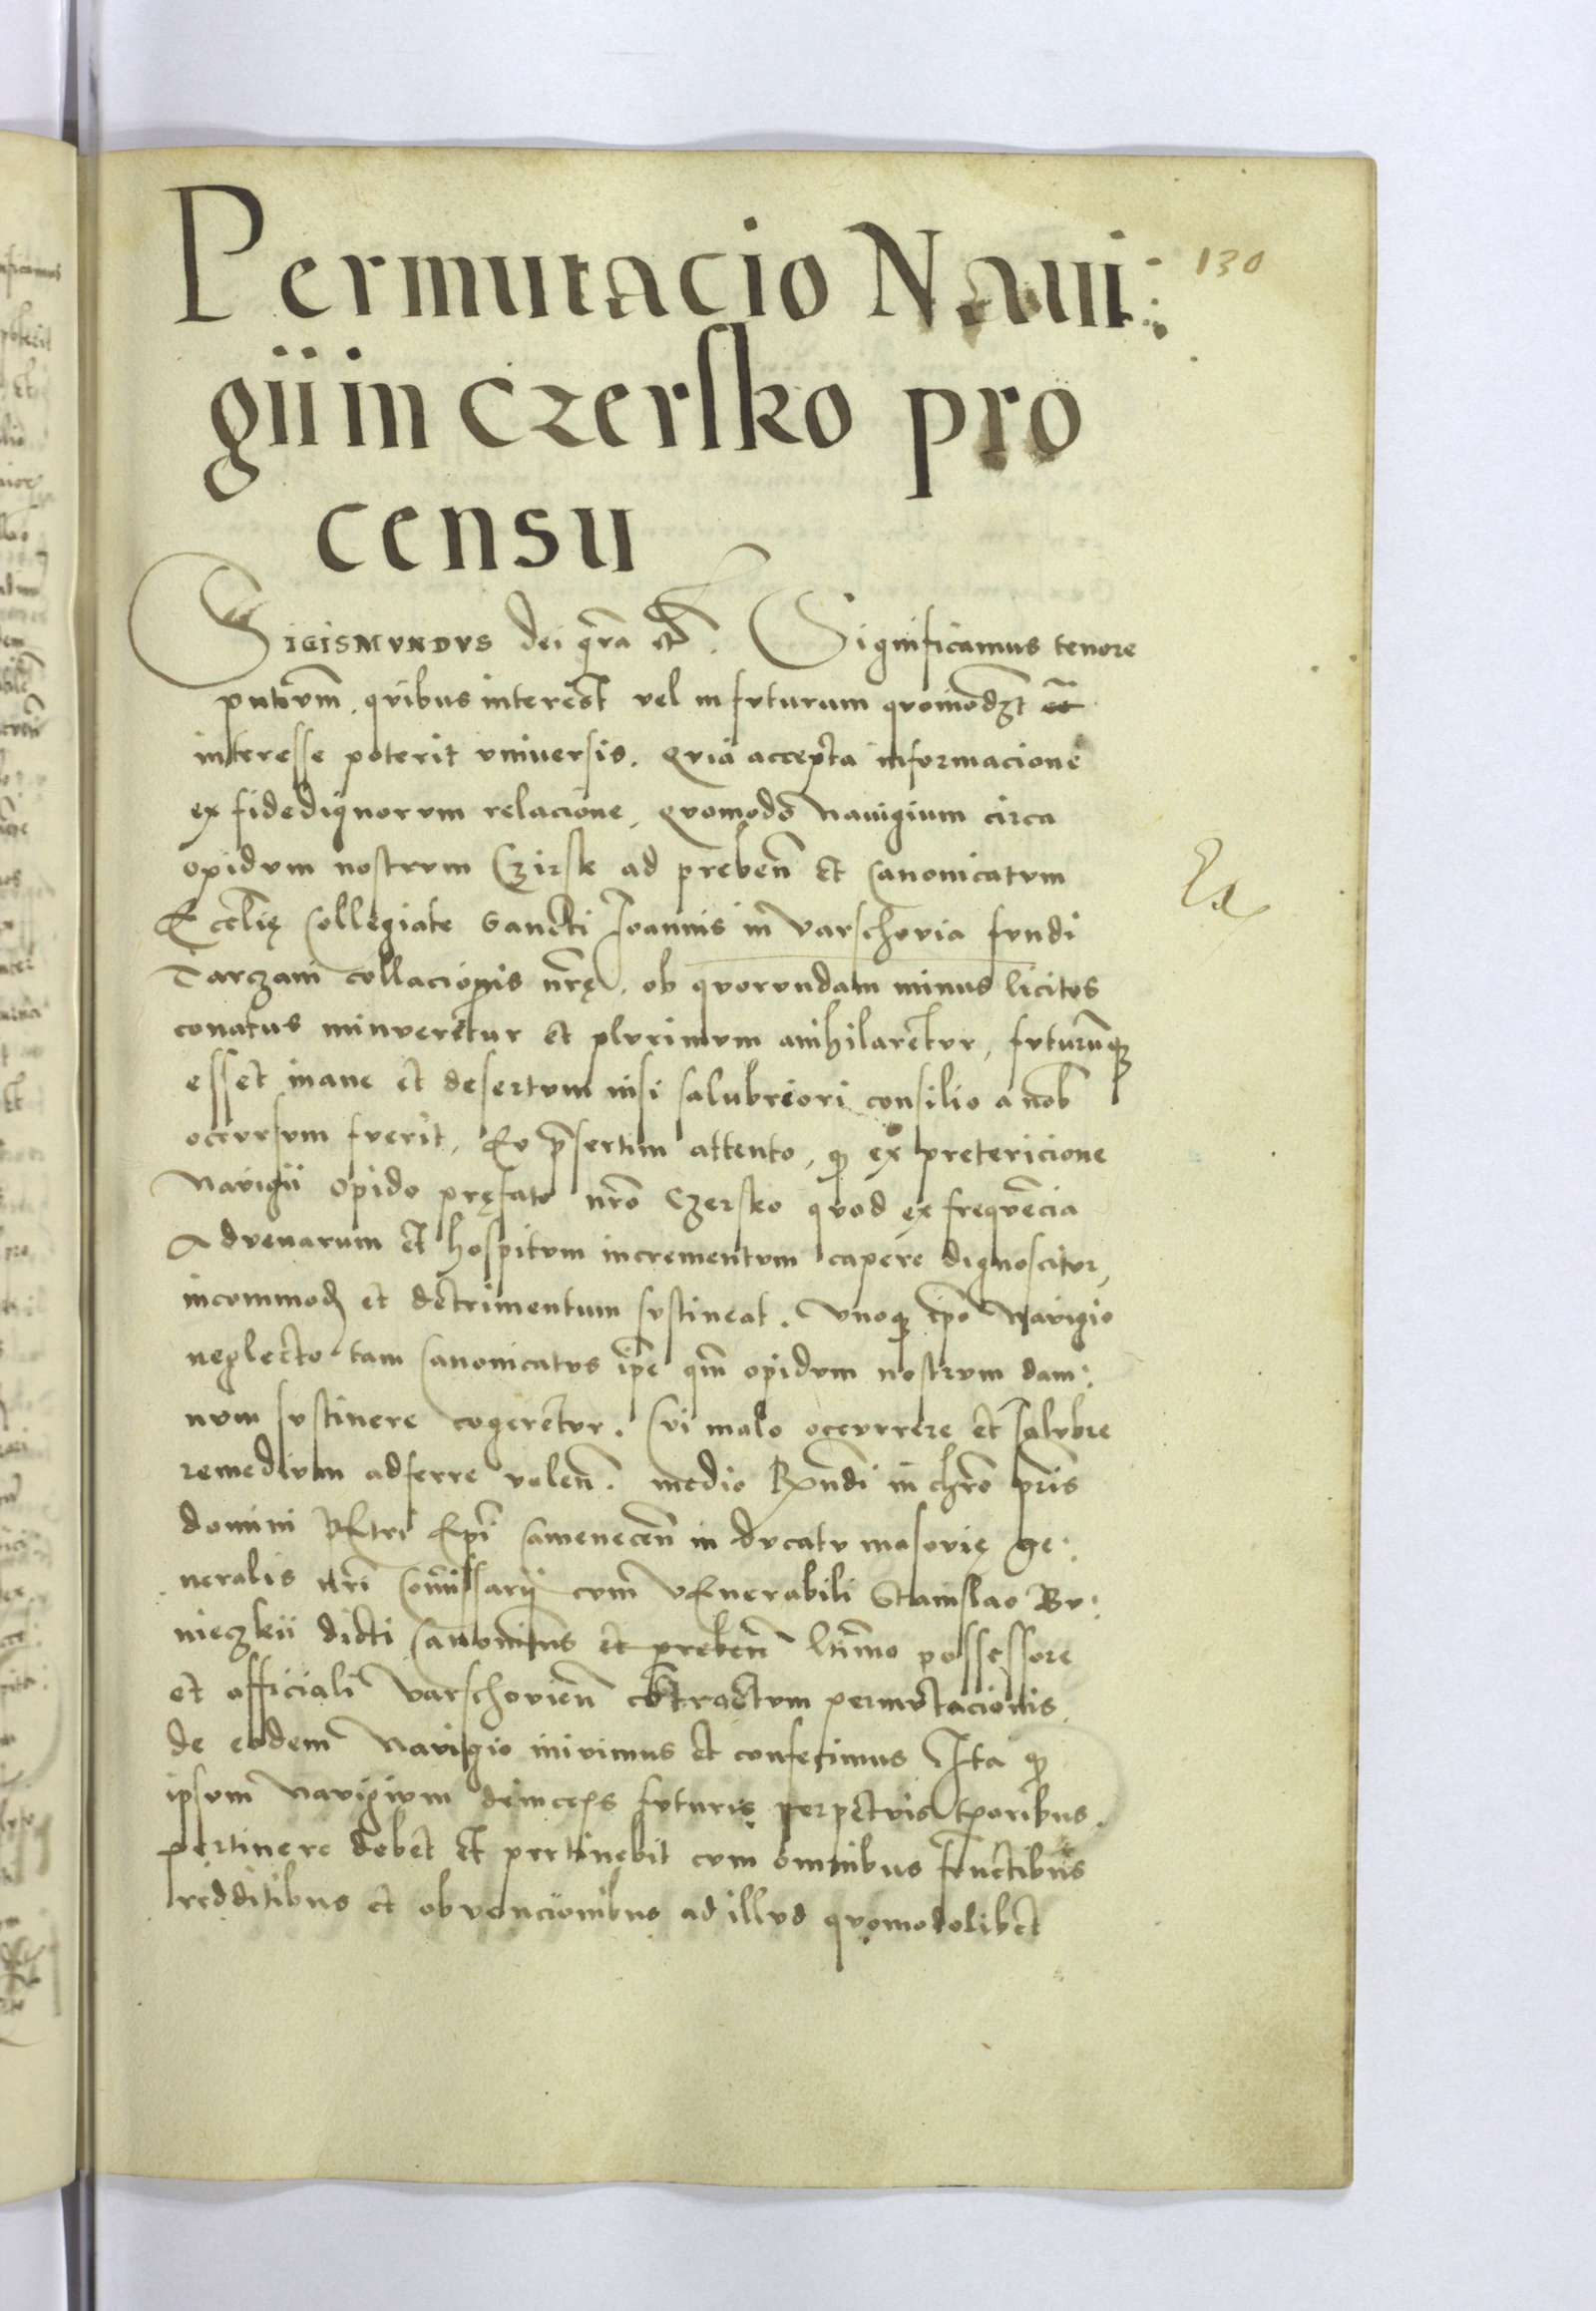 130
Permutacio Naui:
gii in Czersko pro
censu
Sigismvndvs dei gr̃a etc. Significamus tenore
pñtivm̃. qvibus interest vel in fvturum qvomodoɜt
interesse poterit vniuersis. Qvia accepta informacione
ex fidedignorvm relacione, qvomodo Nauigium circa
opidvm nostrvm Czirsk ad prebeñ et Canonicatvm
Eccl̃ię Collegiate Sancti Joannis in Varschovia fvndi
Tarczani collacionis nr̃ę. ob qvorvndam minus licitos
conatus minueretur et plvrimvm anihilaretvr, fvturũqꝫ
esset inane et desertvm nisi salubriori consilio a nob̃
occvrsvm fverit, Eo p̃sertim attento, qꝫ ex pretericione
Navigii opido pręfato nr̃o Czersko qvod ex freqvẽcia
Advenarum et hospitvm incrementvm capere dignoscitvr,
incommodꝫ et detrimentum svstineat. Vnoqꝫ ip̃o Navigio
neglecto tam Canonicatvs ip̃e qm̃ opidvm nostrvm dam:
nvm svstinere cogeretvr. Cvi malo occvrrere et salvbre
remedivm adferre voleñ. medio Rn̄di in chr̃o pr̃is
domini PEtri Ep̃i Cameneceñ in dvcatv masovię ge:
neralis nr̃i Com̃issarij cvm vEnerabili Stanislao Bv:
nieczkii dicti Canonicatus et prebeñ ltimo possessore
et officiali Varschovieñ cõtractvm permvtacionis
de eodem Navigio inivimus et confecimus Ita qꝫ
ipsvm Navigivm deinceps fvturis perpetvis tꝑoribus.
pertinere debet et pertinebit cvm omnibus frvctibus
redditibvs et obvencionibus ad illvd qvomodolibet